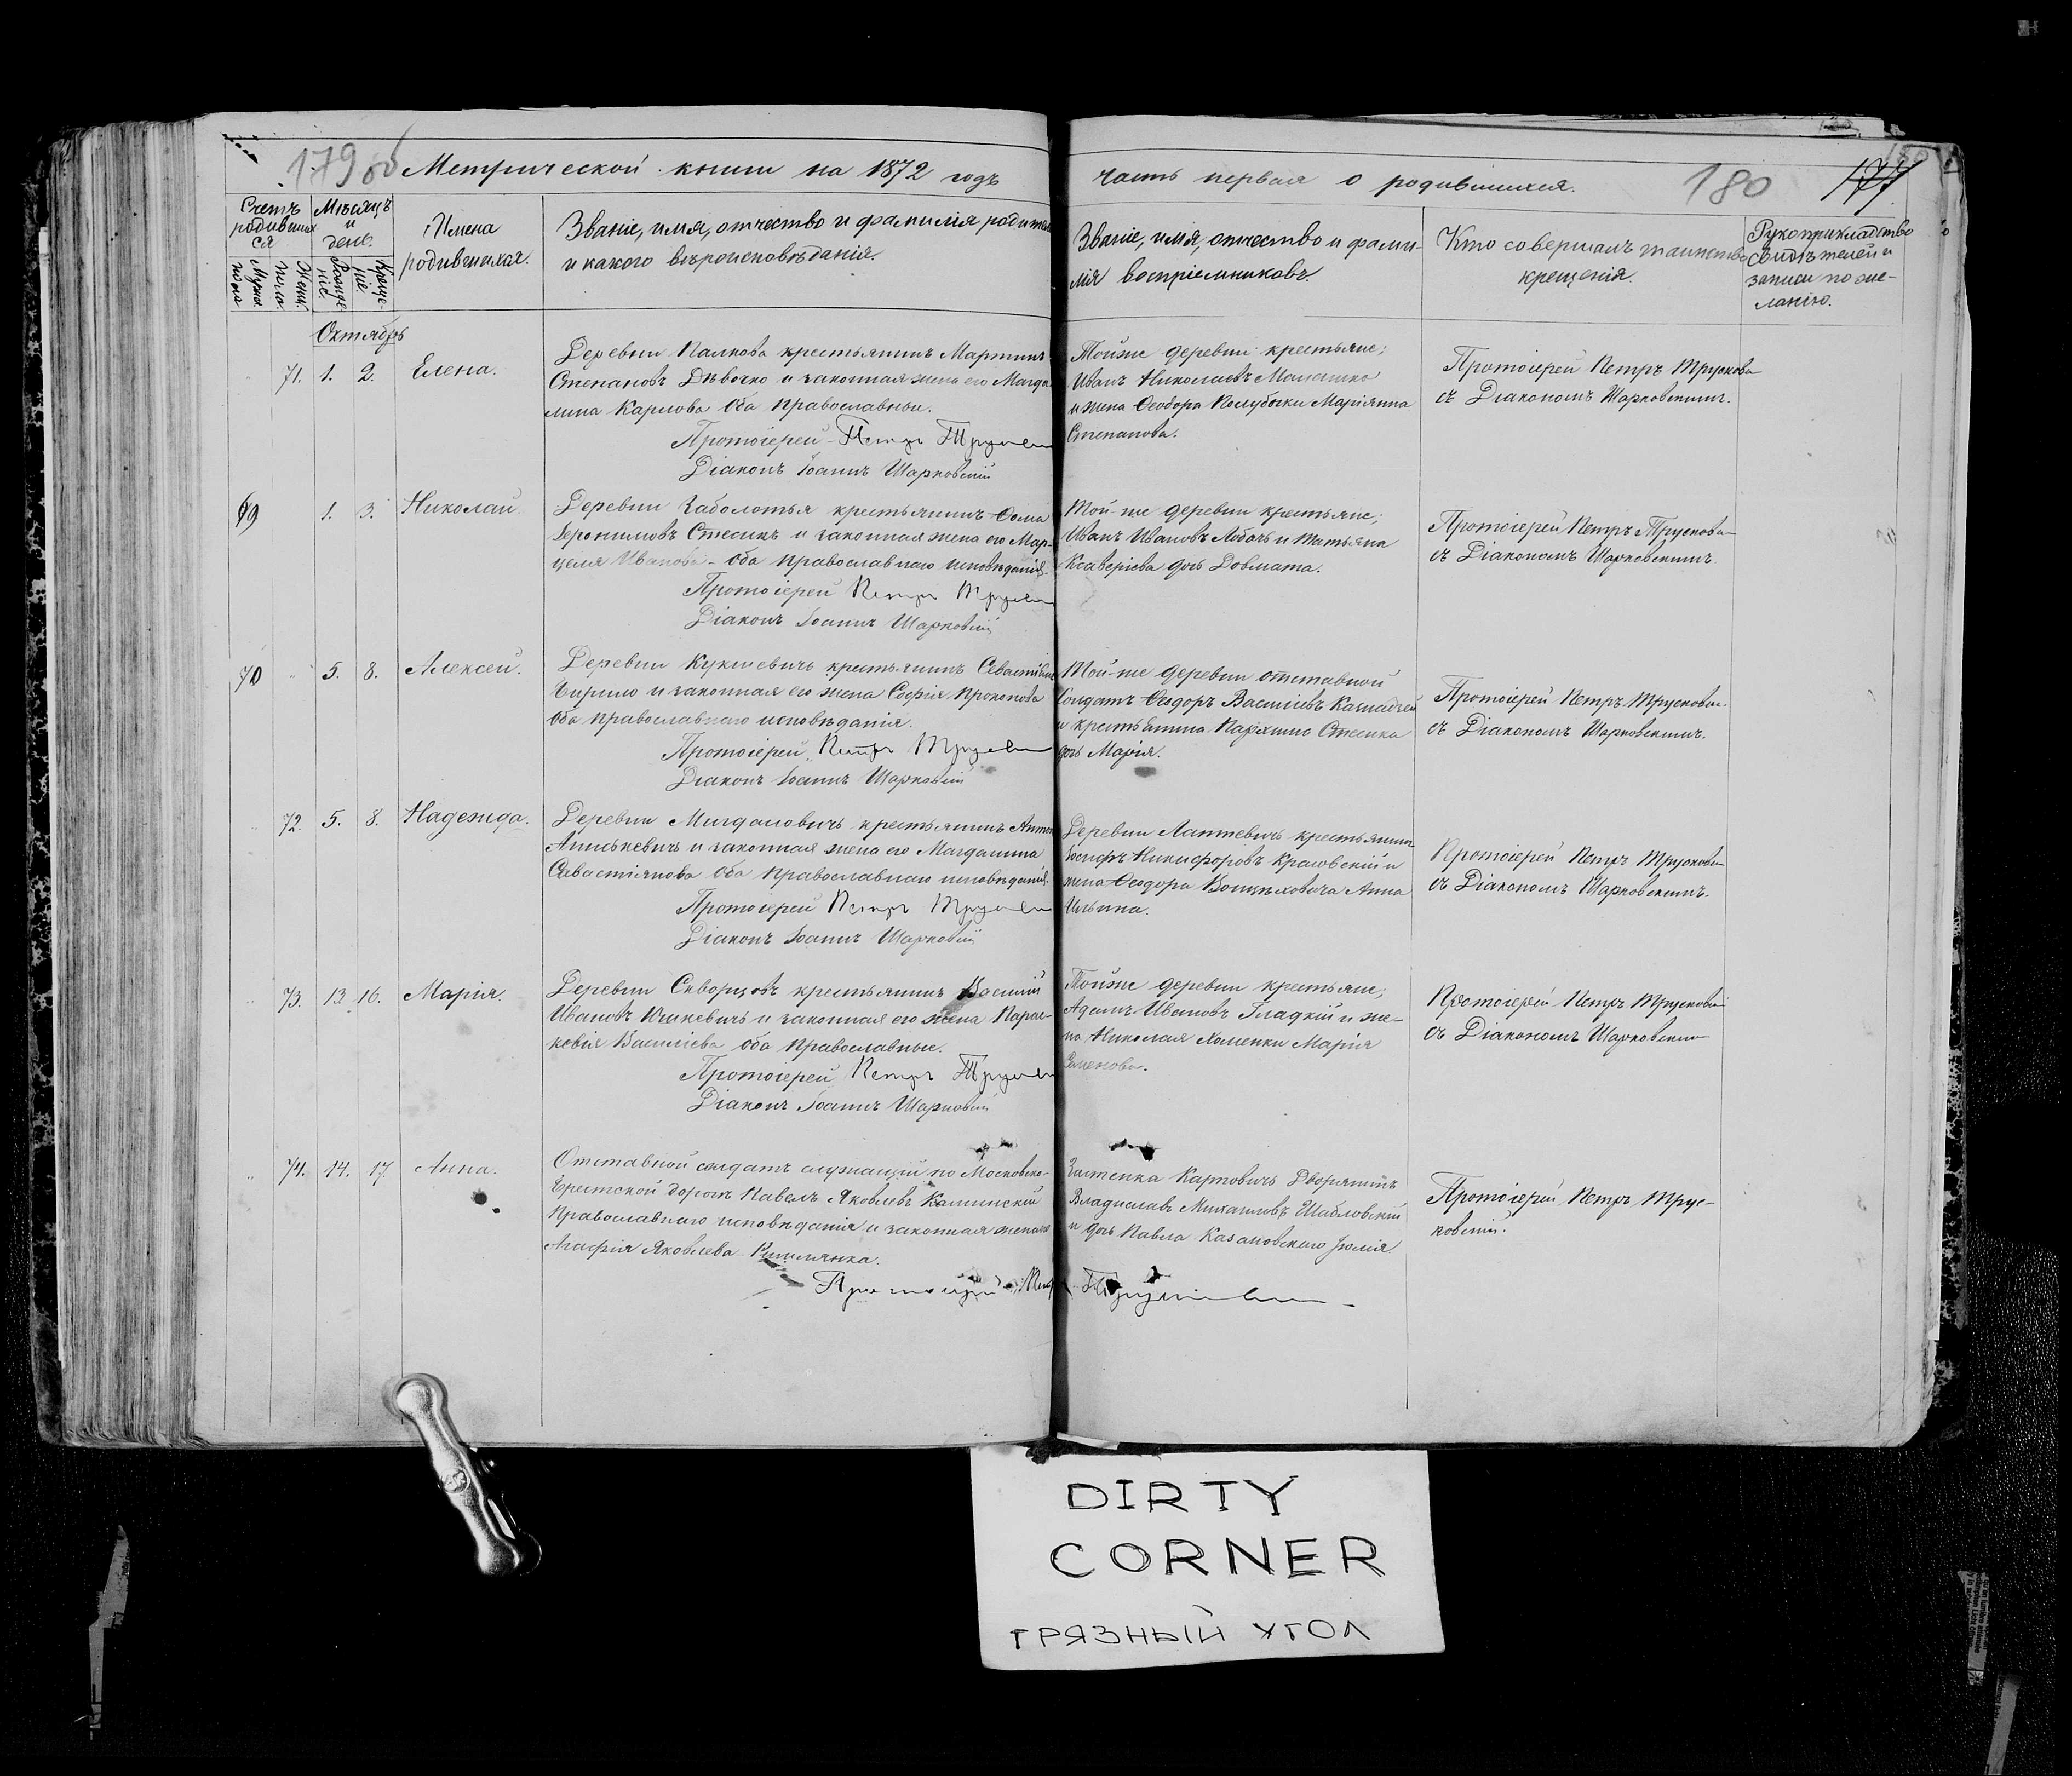 179 об Метрической книги на 1872 годъ
часть первая о родившихся. 180 177
Счетъ родившихся
Мѣсяцъ и день.
Имена родившихся.
Званіе, имя, отчество и фамилія родителей
и какого вѣроисповѣданія.
Званіе, имя, отчество и фами-
лія воспріемниковъ.
Кто совершалъ таинство
крещенія.
Рукоприкладство
свидѣтелей и
записи по же-
ланію.
Мужск. пола
Женск. пола.
Рожденіе.
Крещеніе.
Октябрь
71. 1. 2. Елена.
Деревни Палкова крестьянинъ Мартинъ
Степановъ Дѣвочко и законная жена его Магда-
лина Карлова оба православные.
Протоіерей Петръ
Діаконъ Іоаннъ Шарковскій
Тойже деревни крестьяне;
Иванъ Николаевъ
и жена Ѳеодора Маріянна
Степанова.
Протоіерей Петръ
съ Діакономъ Шарковскимъ.
69 1. 3. Николай.
Деревни Заболотья крестьянинъ Ѳома
Іеронимовъ Стесикъ и законная жена его Мар-
целя Иванова оба православнаго исповѣданія.
Протоіерей Петръ
Діаконъ Іоаннъ Шарковскій
Той-же деревни крестьяне;
Иванъ Ивановъ Лобачъ и Татьяна
Ксаверіева дочь Довмата.
Протоіерей Петръ
съ Діакономъ Шарковскимъ
70 " 5. 8. Алексей.
Деревни Кукшевичъ крестьянинъ
и законная его жена Софія Прокопова
оба православнаго исповѣданія.
Протоіерей Петръ
Діаконъ Іоаннъ Шарковскій
Той-же деревни отставной
солдатъ Ѳеодоръ Василіевъ
и крестьянина Стесика
дочь Марія.
Протоіерей Петръ
съ Діакономъ Шарковскимъ.
72. 5. 8. Надежда.
Деревни Мигдаловичъ крестьянинъ Антонъ
и законная жена его Магдалина
Севастіянова оба православнаго исповѣданія.
Протоіерей Петръ
Діаконъ Іоаннъ Шарковскій
Деревни Лаптевичъ крестьянинъ
Іосифъ Никифоровъ и
жена Ѳеодора Войцѣховича Анна
Ильина.
Протоіерей Петръ
съ Діакономъ Шарковскимъ.
" 73. 13 16. Марія.
Деревни Скворцовъ крестьянинъ Василій
Ивановъ и законная его жена Парас-
кевія Василіева оба православные.
Протоіерей Петръ
Діаконъ Іоаннъ Шарковскій
Тойже деревни крестьяне;
Адамъ Ивановъ Гладкій и же-
на Николая Хоменки Марія
Семенова.
Протоіерей Петръ
съ Діакономъ
" 74. 14. 17. Анна.
Отставной солдатъ служащій по Московско-
Брестской дорогѣ Павелъ Яковлевъ Калинскій
Православнаго исповѣданія и законная жена его
Агафія Яковлева
Застенка Карповичъ Дворянинъ
Владиславъ Михаиловъ Шабловскій
и дочь Павла Казановскаго Юлія
Протоіерей Петръ Трус-
ковскій.
DIRTY
CORNER
ГРЯЗНЫЙ УГОЛ